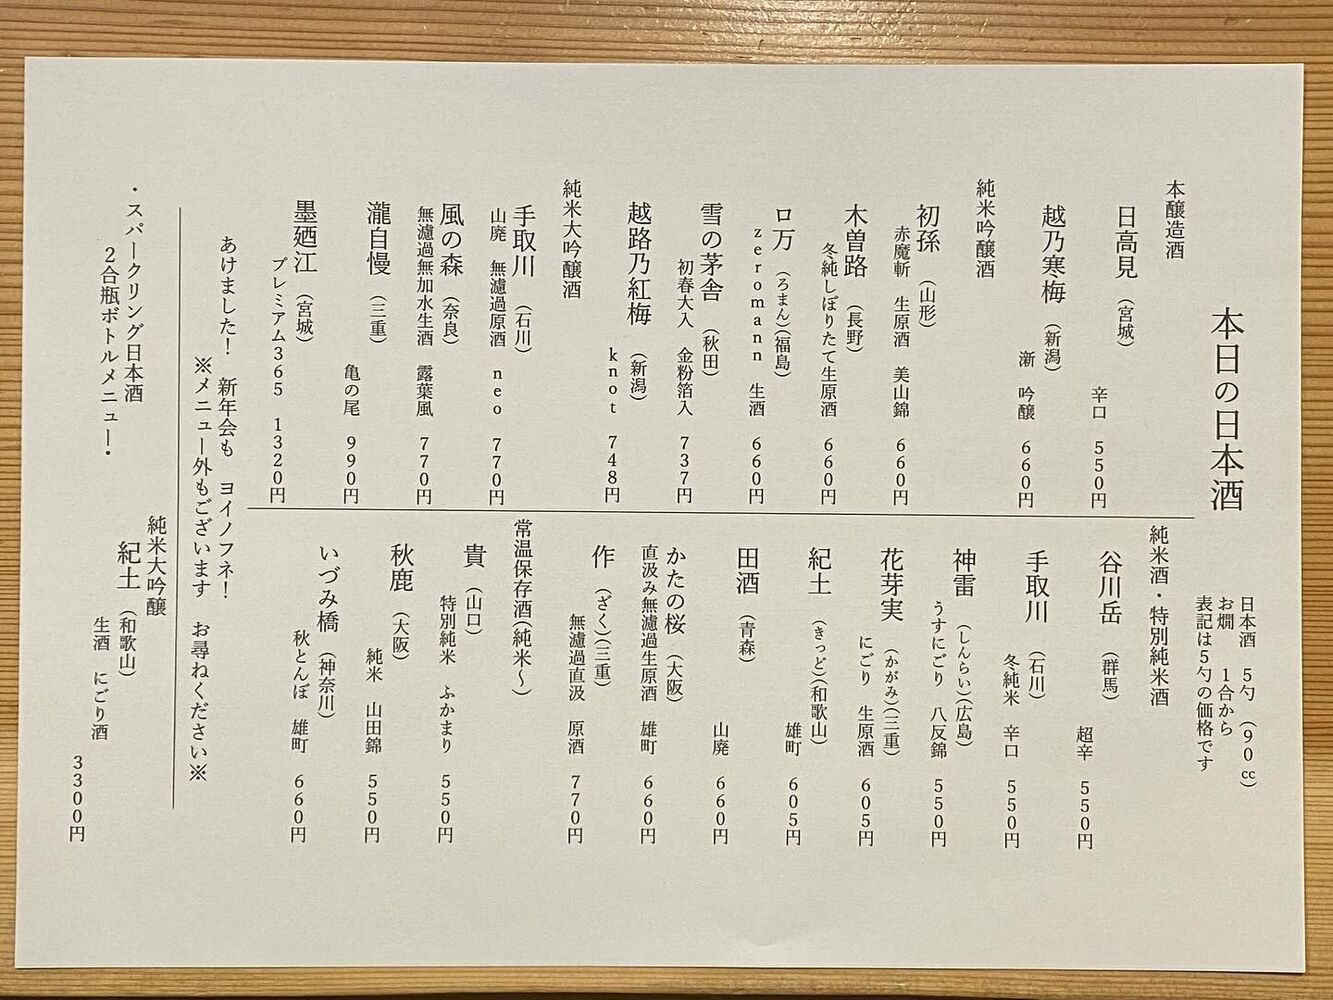 本日の日本酒
日本酒 5勺 (90cc)
お燗 1合から
表記は5勺の価格です
本醸造酒
日高見 (宮城)
辛口 550円
越乃寒梅 (新潟)
漸 吟醸 660円
純米吟醸酒
初孫 (山形)
赤魔斬 生原酒 美山錦 660円
木曽路 (長野)
冬純しぼりたて生原酒 660円
ロ万 (ろまん)(福島)
zeromann 生酒 660円
雪の茅舎 (秋田)
初春大入 金粉箔入 737円
越路乃紅梅 (新潟)
knot 748円
純米大吟醸酒
手取川 (石川)
山廃 無濾過原酒 neo 770円
風の森 (奈良)
無濾過無加水生酒 露葉風 770円
瀧自慢 (三重)
亀の尾 990円
墨廼江 (宮城)
プレミアム365 1320円
純米酒・特別純米酒
谷川岳 (群馬)
超辛 550円
手取川 (石川)
冬純米 辛口 550円
神雷 (しんらい)(広島)
うすにごり 八反錦 550円
花芽実 (かがみ)(三重)
にごり 生原酒 605円
紀土 (きっど)(和歌山)
雄町 605円
田酒 (青森)
山廃 660円
かたの桜 (大阪)
直汲み無濾過生原酒 雄町 660円
作 (ざく)(三重)
無濾過直汲 原酒 770円
常温保存酒(純米〜)
貴 (山口)
特別純米 ふかまり 550円
秋鹿 (大阪)
純米 山田錦 550円
いづみ橋 (神奈川)
秋とんぼ 雄町 660円
あけました! 新年会も ヨイノフネ!
※メニュー外もございます お尋ねください※
・スパークリング日本酒
2合瓶ボトルメニュー・
純米大吟醸
紀土 (和歌山)
生酒 にごり酒
3300円